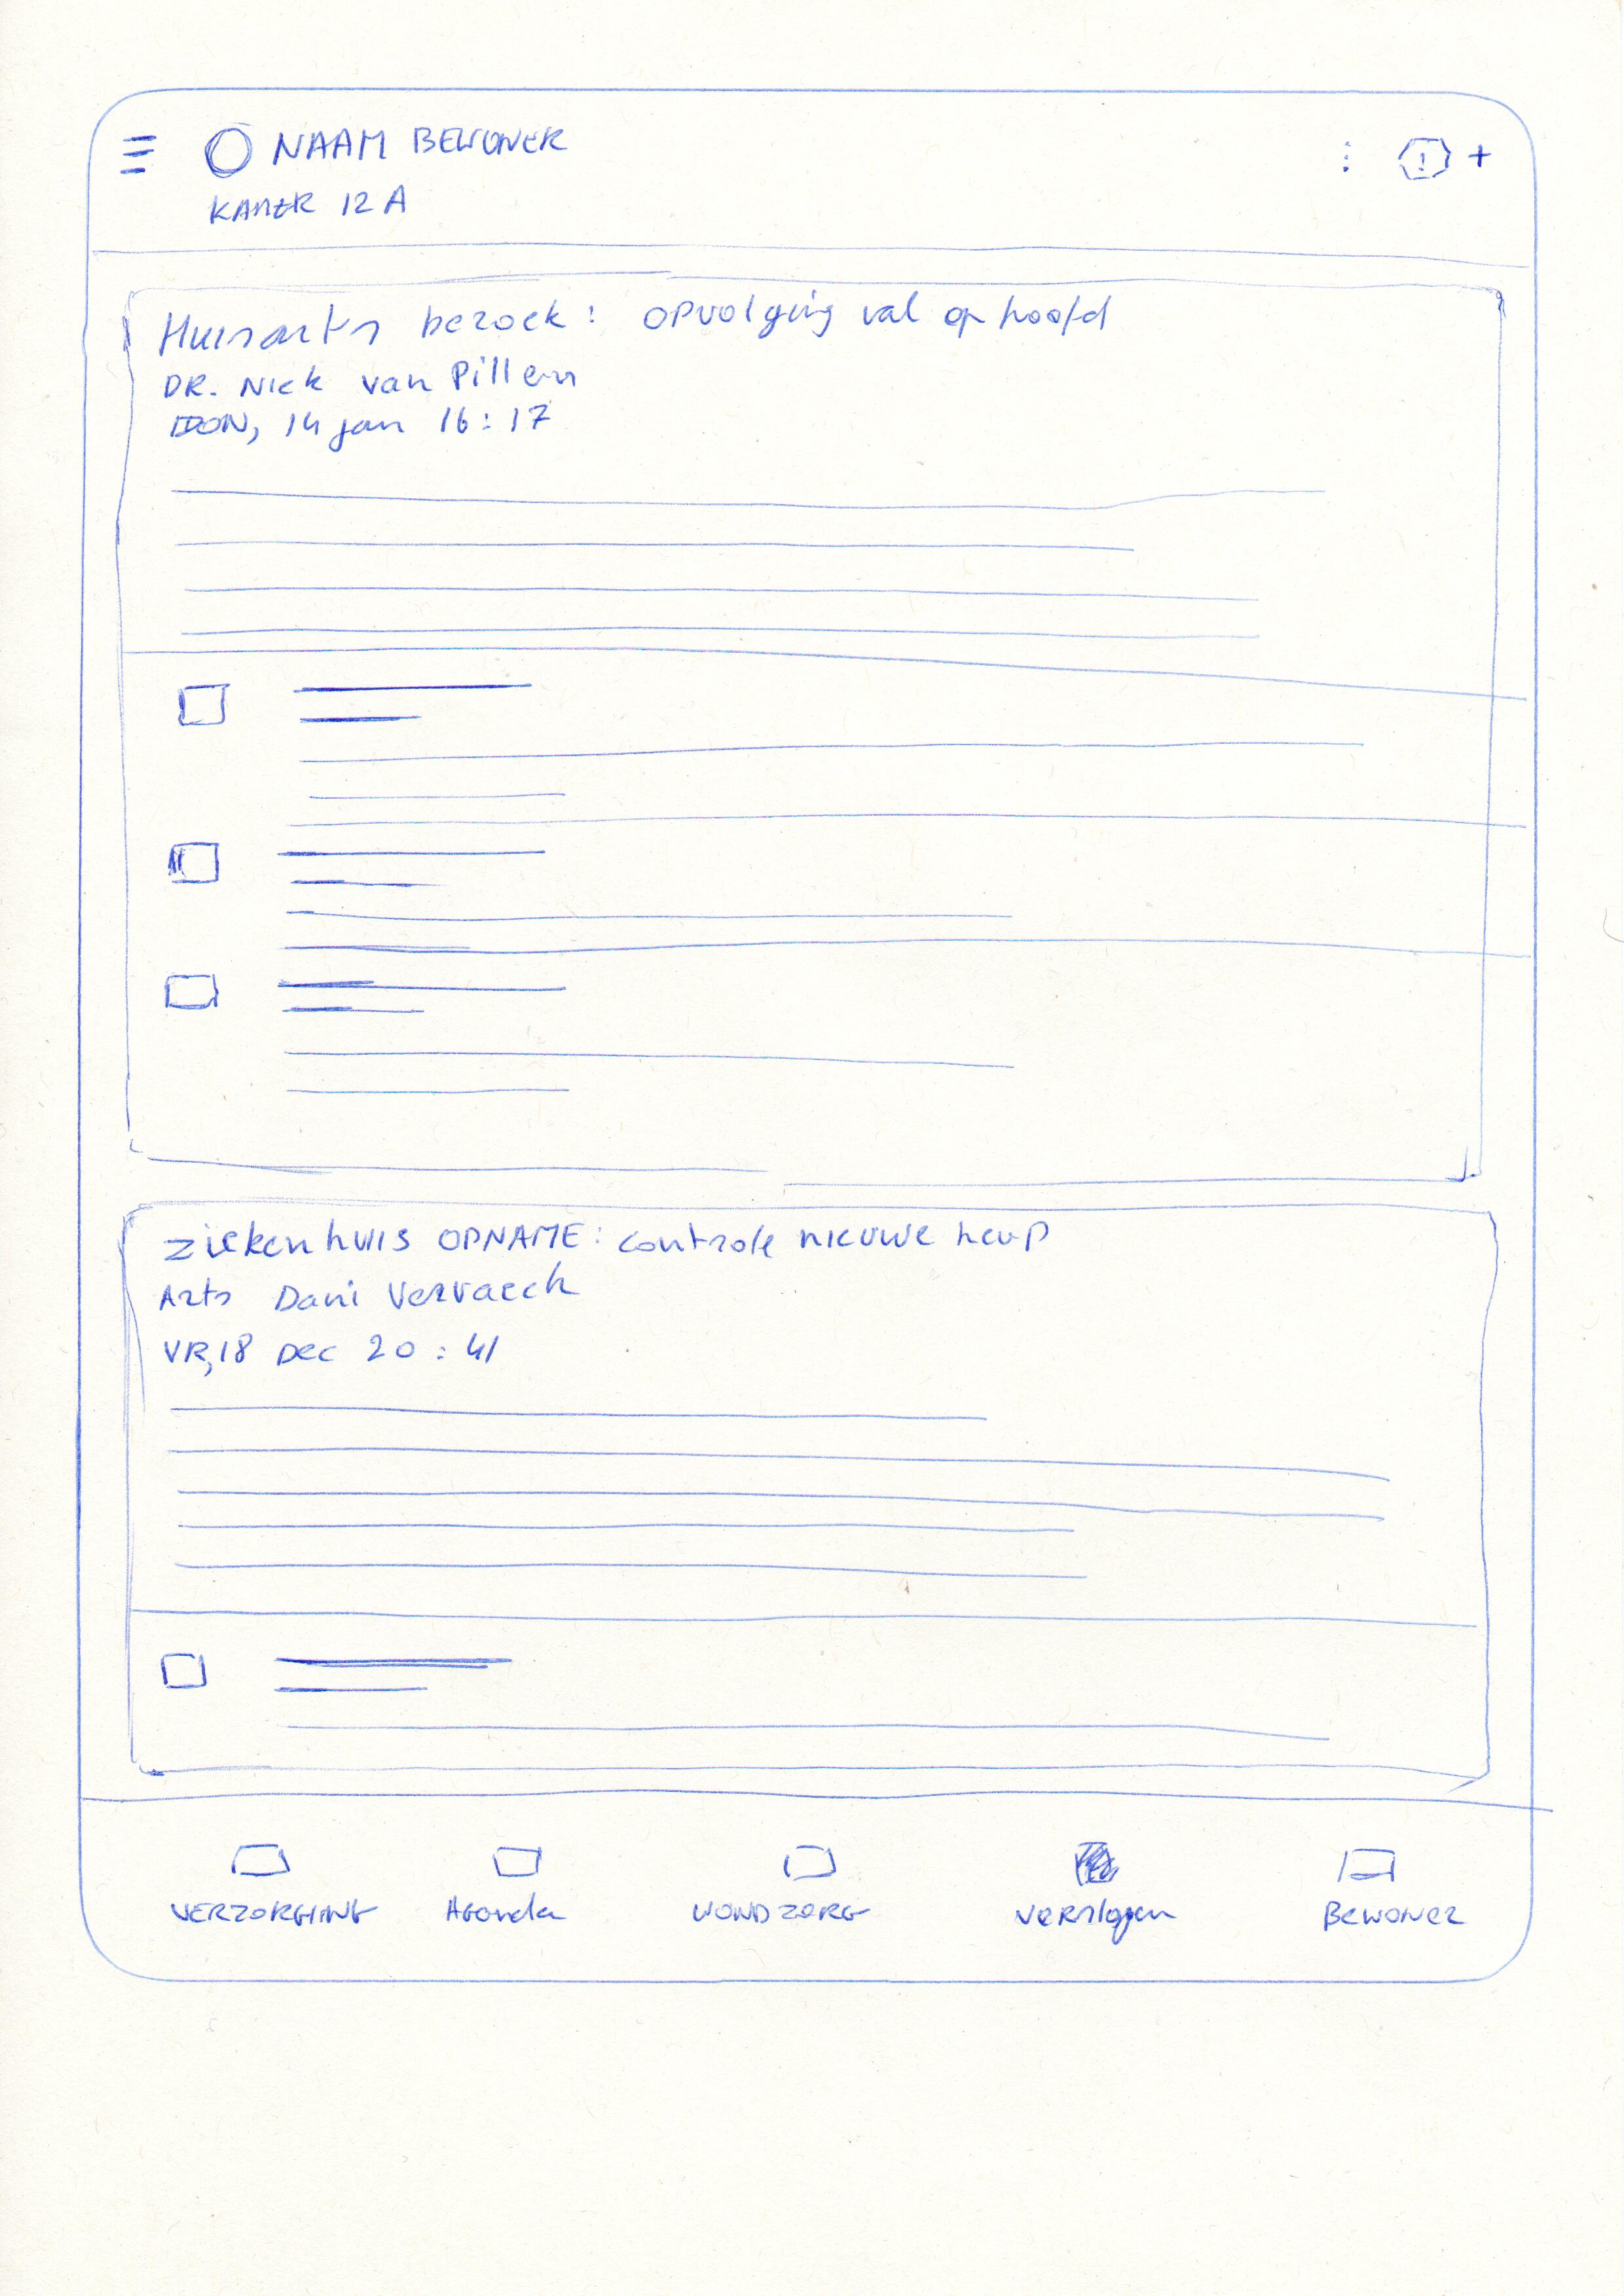 NAAM BEWONER
KAMER 12 A
Huisarts bezoek: opvolging val op hoofd
DR. Niek van Pillem
DON, 14 jan 16:17
Ziekenhuis OPNAME: controle nieuwe heup
Arts Dani Vervaeck
VR, 18 Dec 20:41
VERZORGING Agenda WONDZORG Verslagen Bewoner